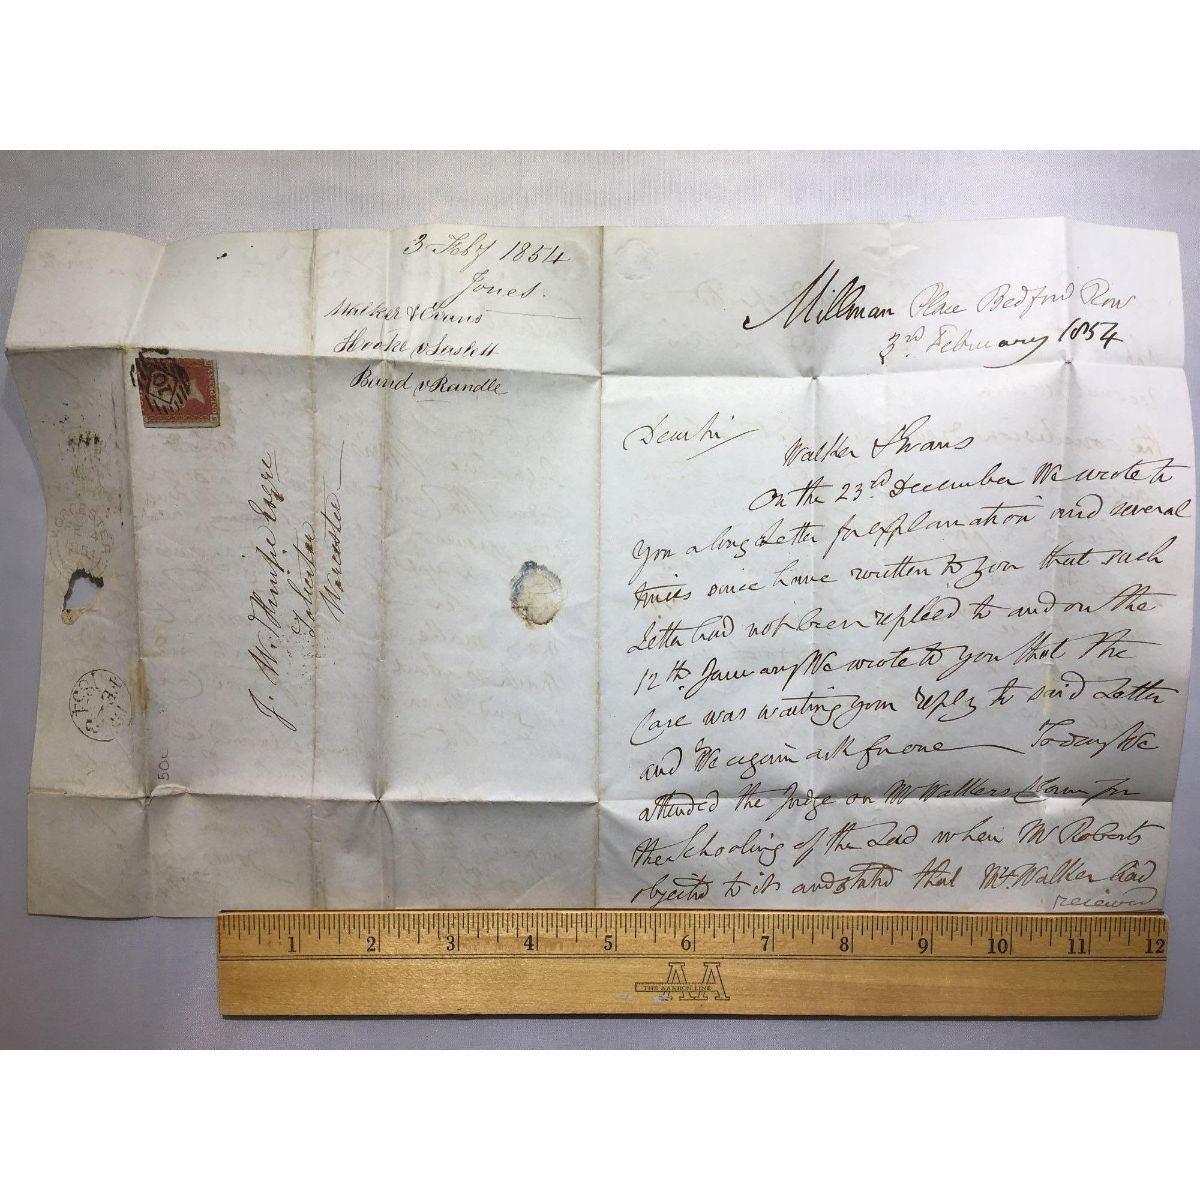 3 Feby 1854
Jones.
Walker v Evans
Hooke v Laslett
Band v Randle
J. W. Esqre
Solicitor
Worcester
50c
Millman Place Bedford Row
3rd February 1854
Dear Sir
Walker v Evans
On the 23rd December We wrote to
you a long Letter for explanation and several
times since have written to you that such
Letter had not been replied to and on the
12th January We wrote to you that the
Case was waiting your reply to said Letter
and We again ask for one — To day We
attended the Judge on Mr Walkers for
the Schooling of the Lad when Mr Roberts
objected to its and stated that Mr Walker had
received
1 2 3 4 5 6 7 8 9 10 11 12
AA
THE AKRON LINE